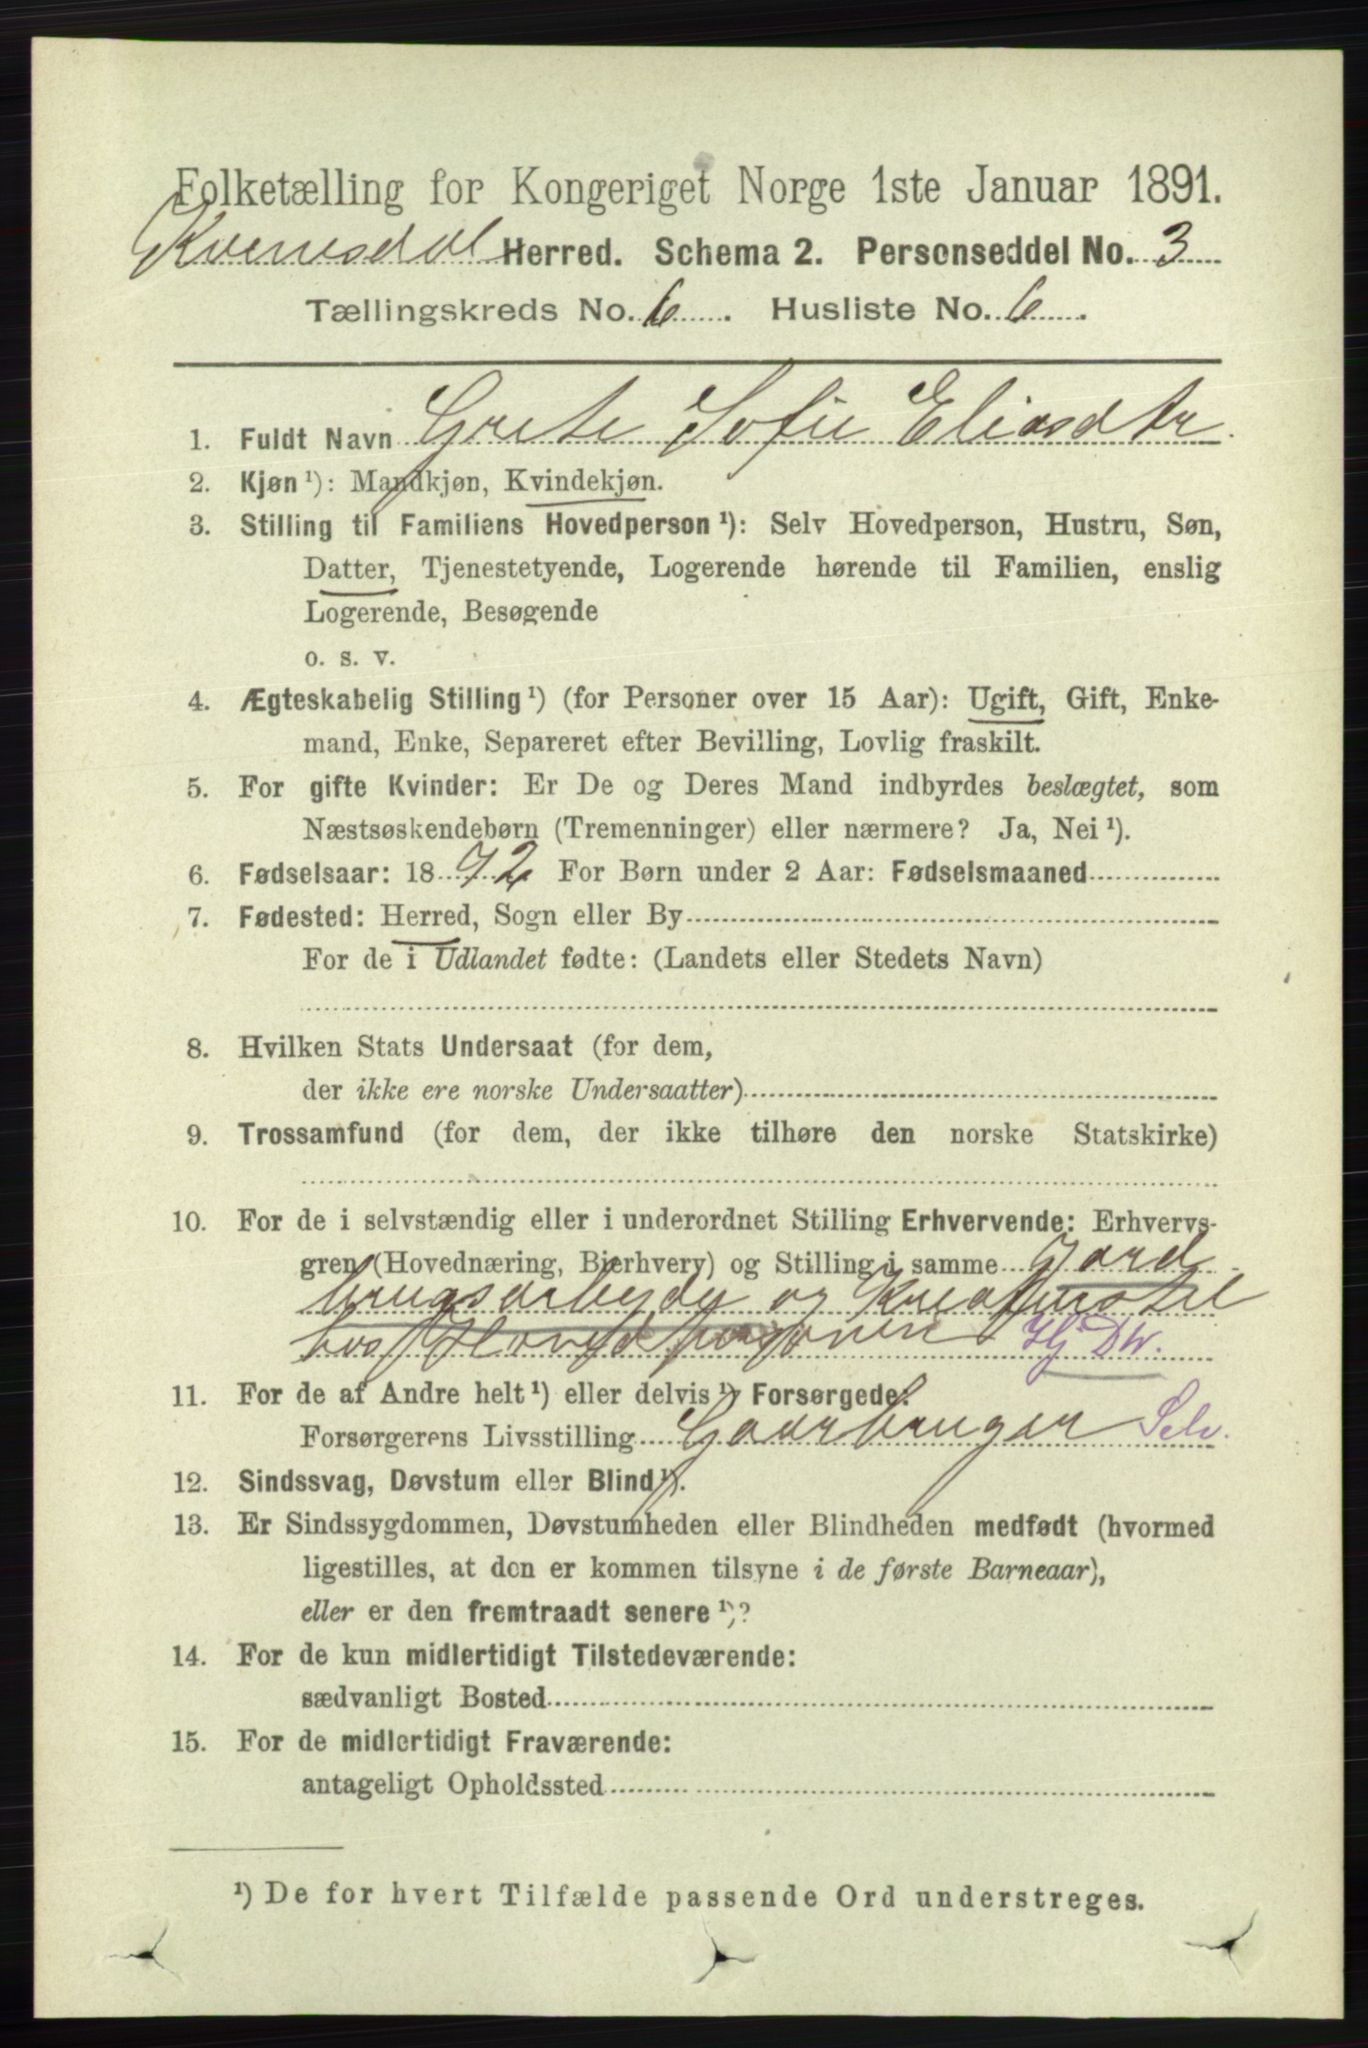 Folketælling for Kongeriget Norge 1ste Januar 1891.
Kvinesdal Herred. Schema 2. Personseddel No. 3
Tællingskreds No. 6. Husliste No. 6.
1. Fuldt Navn Grete Sofie Eliasdtr.
2. Kjøn ¹): Mandkjøn, Kvindekjøn.
3. Stilling til Familiens Hovedperson ¹): Selv Hovedperson, Hustru, Søn,
Datter, Tjenestetyende, Logerende hørende til Familien, enslig
Logerende, Besøgende
o. s. v.
4. Ægteskabelig Stilling ¹) (for Personer over 15 Aar): Ugift, Gift, Enke-
mand, Enke, Separeret efter Bevilling, Lovlig fraskilt.
5. For gifte Kvinder: Er De og Deres Mand indbyrdes beslægtet, som
Næstsøskendebørn (Tremenninger) eller nærmere? Ja, Nei ¹).
6. Fødselsaar: 1872 For Børn under 2 Aar: Fødselsmaaned
7. Fødested: Herred, Sogn eller By
For de i Udlandet fødte: (Landets eller Stedets Navn)
8. Hvilken Stats Undersaat (for dem,
der ikke ere norske Undersaatter)
9. Trossamfund (for dem, der ikke tilhøre den norske Statskirke)
10. For de i selvstændig eller i underordnet Stilling Erhvervende: Erhvervs-
gren (Hovednæring, Bierhverv) og Stilling i samme Jord
brugsarbeyde og Kreaturstel
hos Hovedpersonen Hj DW.
11. For de af Andre helt ¹) eller delvis ¹) Forsørgede:
Forsørgerens Livsstilling Gaarbruger Selv.
12. Sindssvag, Døvstum eller Blind ¹).
13. Er Sindssygdommen, Døvstumheden eller Blindheden medfødt (hvormed
ligestilles, at den er kommen tilsyne i de første Barneaar),
eller er den fremtraadt senere ¹)?
14. For de kun midlertidigt Tilstedeværende:
sædvanligt Bosted
15. For de midlertidigt Fraværende:
antageligt Opholdssted
¹) De for hvert Tilfælde passende Ord understreges.